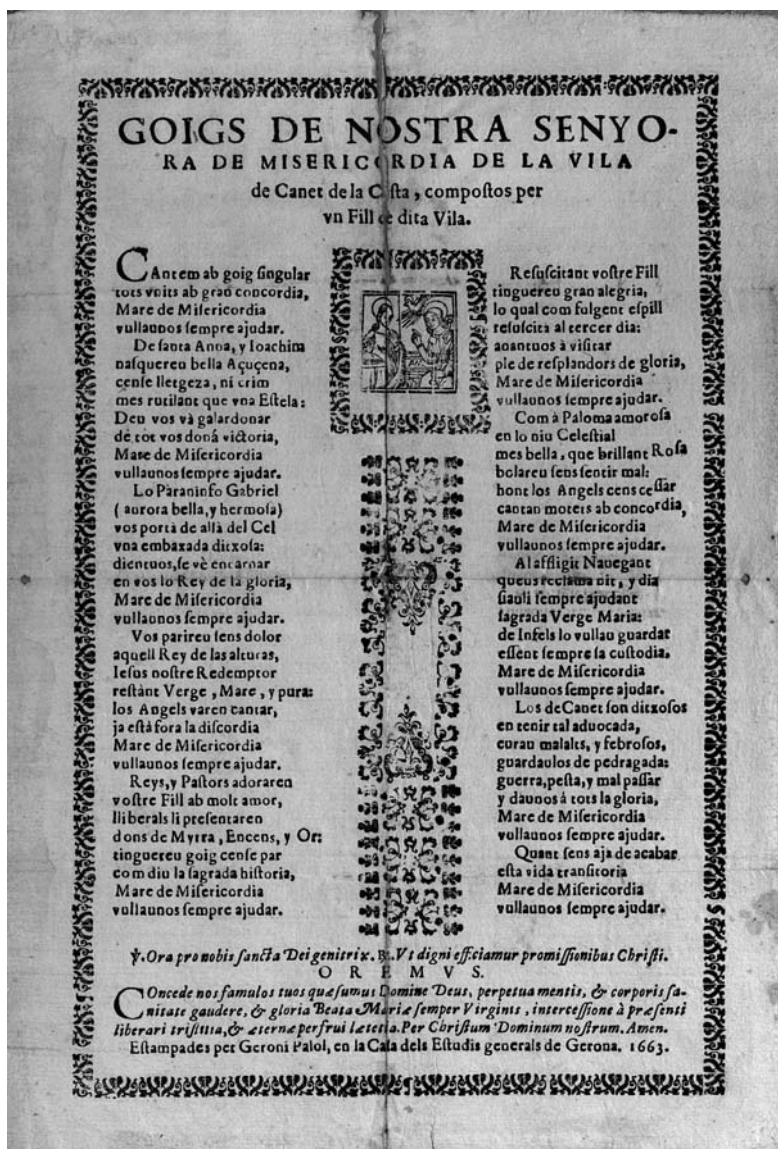 GOIGS DE NOSTRA SENYO-
RA DE MISERICORDIA DE LA VILA
de Canet de la Costa, compostos per
vn Fill de dita Vila.
CAntem ab goig singular
tots vnits ab gran concordia,
Mare de Misericordia
vullaunos sempre ajudar.
De santa Anna, y Ioachim
nasquereu bella Açuçena,
cense lletgeza, ni crim
mes rutilant que vna Estela:
Deu vos và galardonar
de tot vos donà victoria,
Mare de Misericordia
vullaunos sempre ajudar.
Lo Paraninfo Gabriel
( aurora bella, y hermosa)
vos portà de allà del Cel
vna embaxada ditxosa:
dientuos, se vè encarnar
en vos lo Rey de la gloria,
Mare de Misericordia
vullaunos sempre ajudar.
Vos parireu sens dolor
aquell Rey de las alturas,
Iesus nostre Redemptor
restànt Verge, Mare, y pura:
los Angels varen cantar,
ja està fora la discordia
Mare de Misericordia
vullaunos sempre ajudar.
Reys, y Pastors adoraren
vostre Fill ab molt amor,
lliberals li presentaren
dons de Myrra, Encens, y Or:
tinguereu goig cense par
com diu la sagrada historia,
Mare de Misericordia
vullaunos sempre ajudar.
Resuscitant vostre Fill
tinguereu gran alegria,
lo qual com fulgent espill
resuscità al tercer dia:
anantuos à visitar
ple de resplandors de gloria,
Mare de Misericordia
vullaunos sempre ajudar.
Com à Paloma amorosa
en lo niu Celestial
mes bella, que brillant Rosa
bolareu sens sentir mal:
hont los Angels cens cessar
cantan motets ab concordia,
Mare de Misericordia
vullaunos sempre ajudar.
Al affligit Nauegant
queus reclama nit, y dia
siauli sempre ajudant
sagrada Verge Maria:
de Infels lo vullau guardar
essent sempre sa custodia.
Mare de Misericordia
vullaunos sempre ajudar.
Los de Canet son ditxosos
en tenir tal aduocada,
curau malalts, y febrosos,
guardaulos de pedragada:
guerra, pesta, y mal passar
y daunos á tots la gloria,
Mare de Misericordia
vullaunos sempre ajudar.
Quant sens aja de acabar
esta vida transitoria
Mare de Misericordia
vullaunos sempre ajudar.
℣. Ora pro nobis sancta Dei genitrix. ℟. Vt digni efficiamur promissionibus Christi.
OREMVS.
COncede nos famulos tuos quæsumus Domine Deus, perpetua mentis, & corporis sa-
nitate gaudere, & gloria Beatæ Mariæ semper Virginis, intercessione à præsenti
liberari tristitia, & æterna perfrui lætetia. Per Christum Dominum nostrum. Amen.
Estampades per Geroni Palol, en la Casa dels Estudis generals de Gerona. 1663.